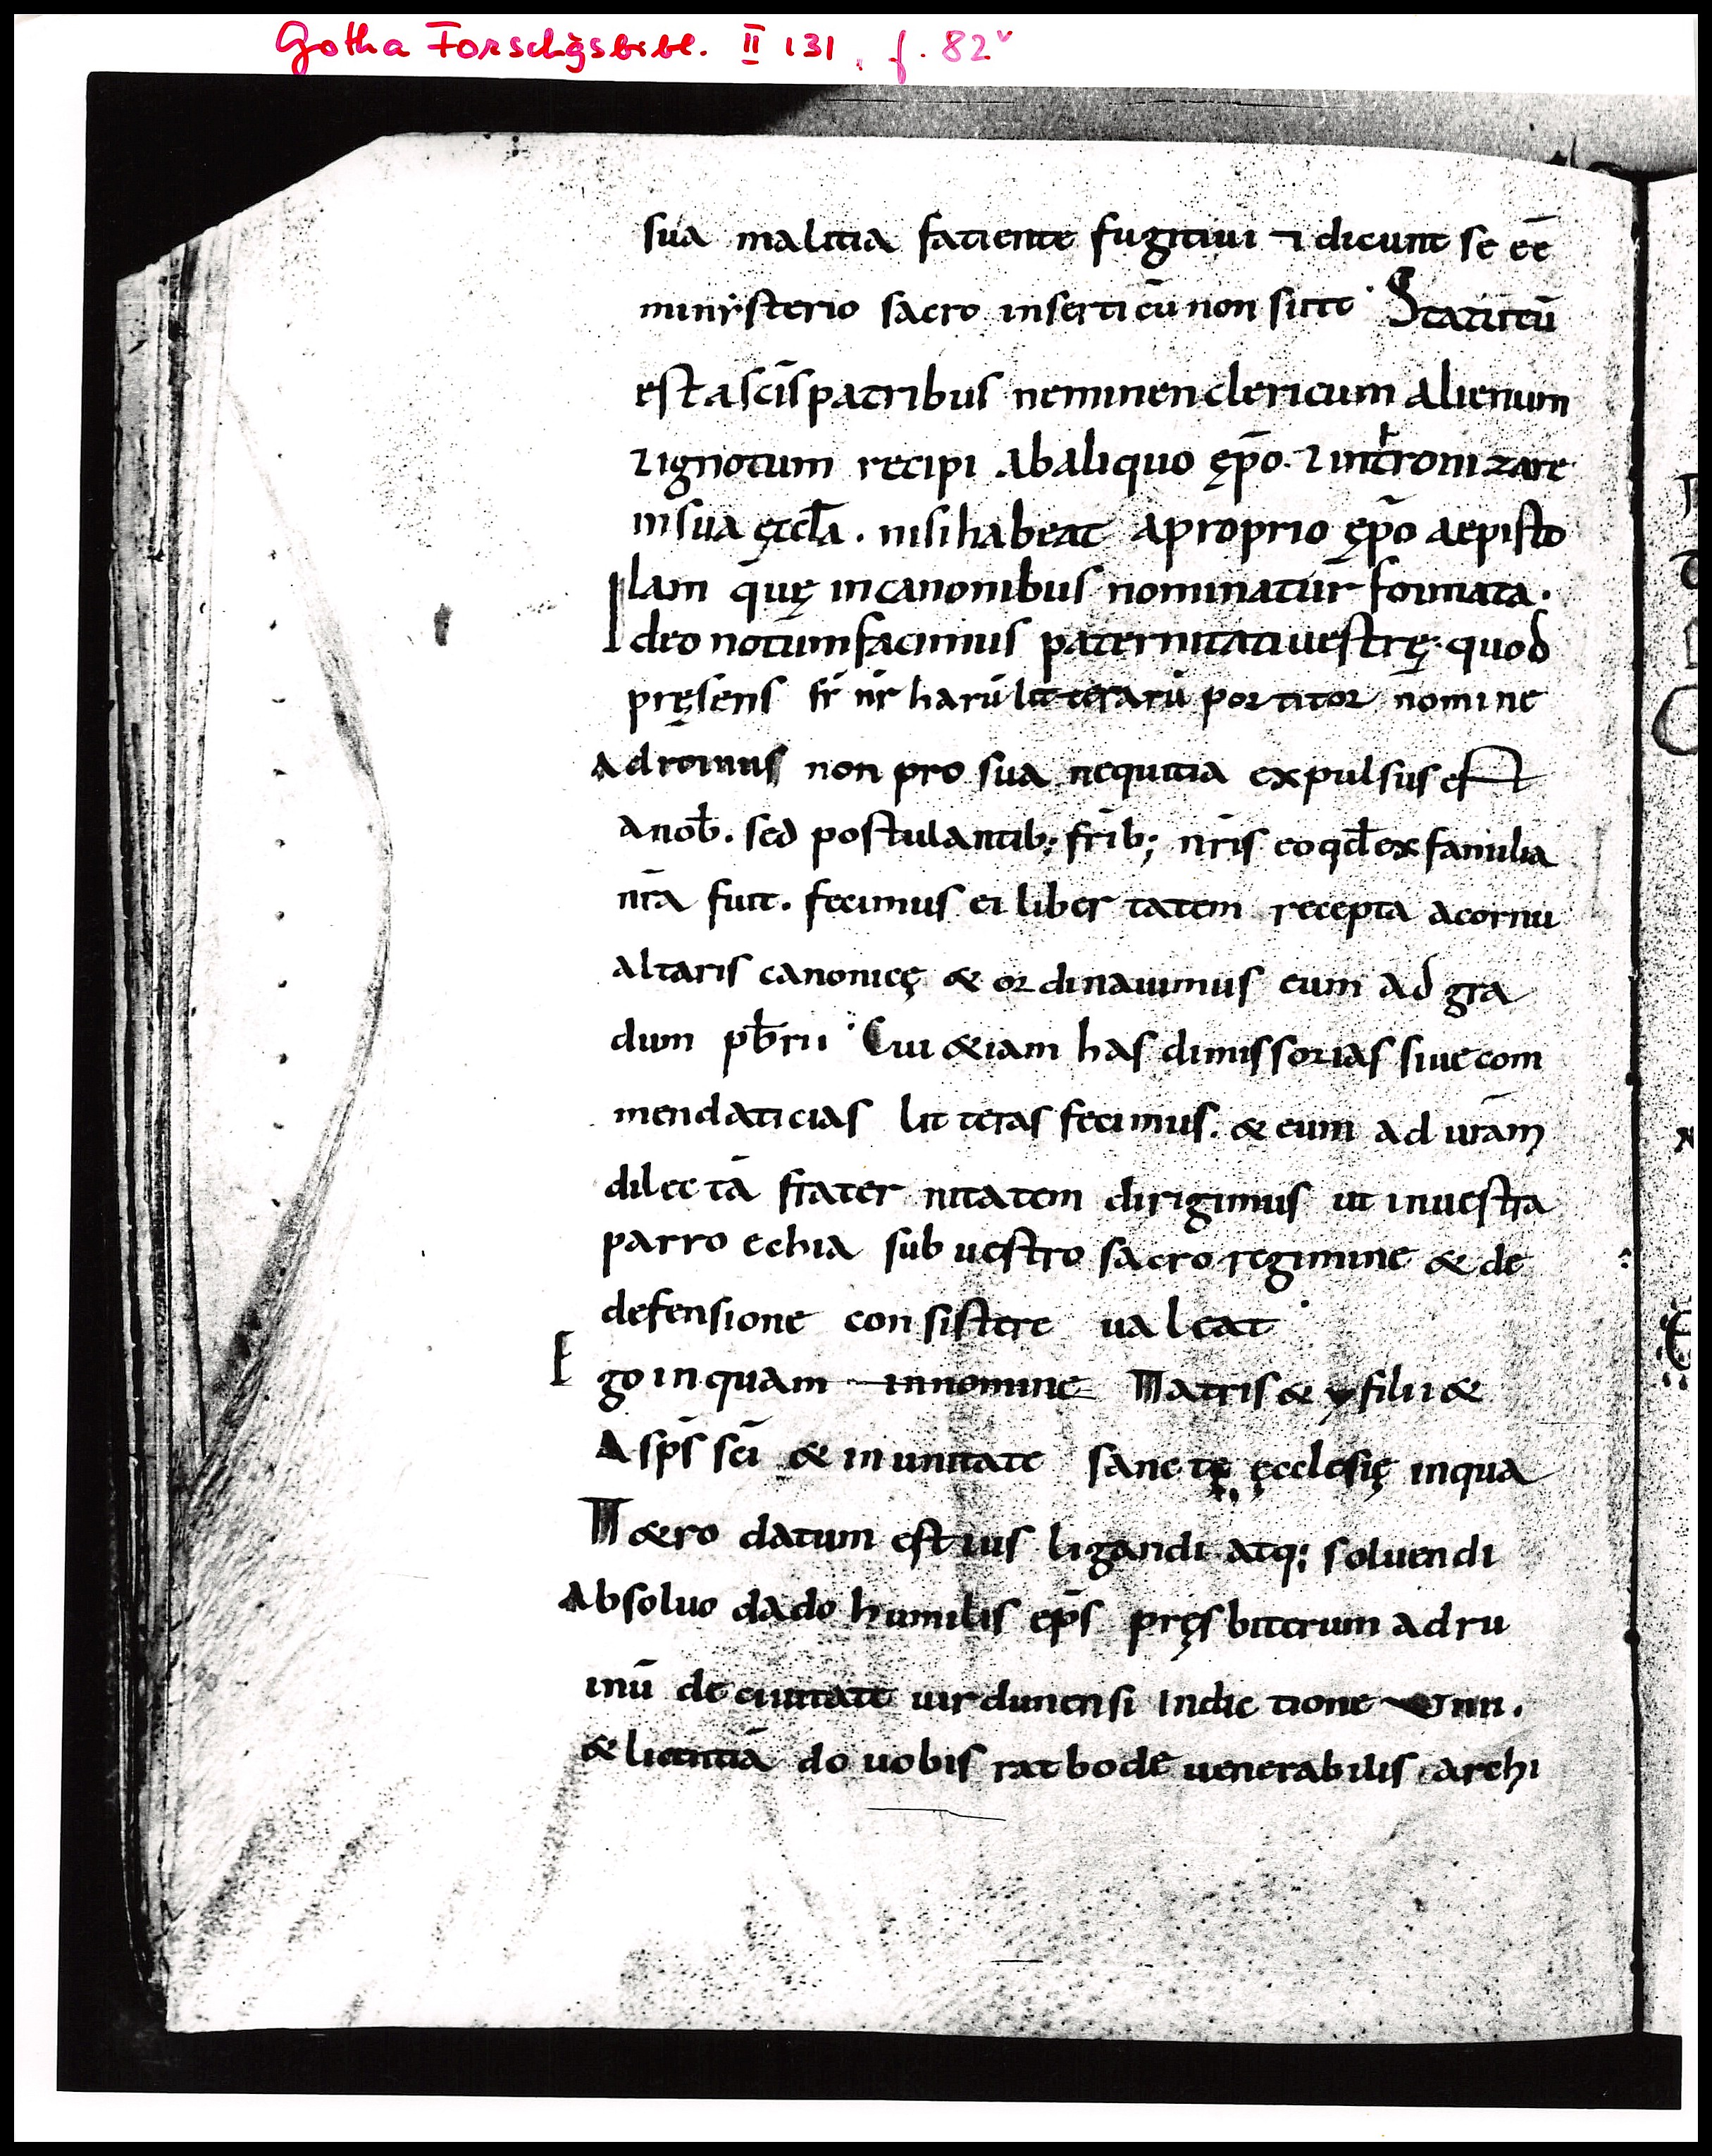 Gotha Forschgsbibl. II 131, f. 82v
sua malitia fatiente fugitiui ⁊ dicunt se eē
minẏsterio sacro inserti cū non sint· Statutū
est a sc̄is patribus neminen clericum alienum
⁊ ignotum recipi ab aliquo ęp̄o. ⁊ intronizare
in sua ęccl̄a. nisi habeat a proprio ęp̄o aepisto
lam q̄uę in canonibus nominatur formata.
Ideo notum facimus paternitati uestrę· quod
pręsens fr̄ nr̄ harū litterarū portitor nomine
Adroinus non pro sua nequitia expulsus est
a nob̄. sed postulantib; fr̄ib; nr̄is eo qd̄ ex familia
nr̄a fuit. fecimus ei libertatem recepta a cornu
altaris canonicę & ordinauimus eum ad gra
dum pb̄rii· Cui &iam has dimissorias siue com
mendaticias litteras fecimus. & eum ad ur̄am
dilectā fraternitatem dirigimus ut in uestra
parroechia sub uestro sacro regimine & de
defensione consistere ualeat·
Ego inquam in nomine Patris & y filii &
A sp̄s sc̄i & in unitate sanctę ęcclesię in qua
P&ro datum est ius ligandi atq; soluendi
Absoluo dado humilis ep̄s pręsbiterum adru
inū de ciuitate uirdunensi Indictione
& licentiā do uobis ratbode uenerabilis archi